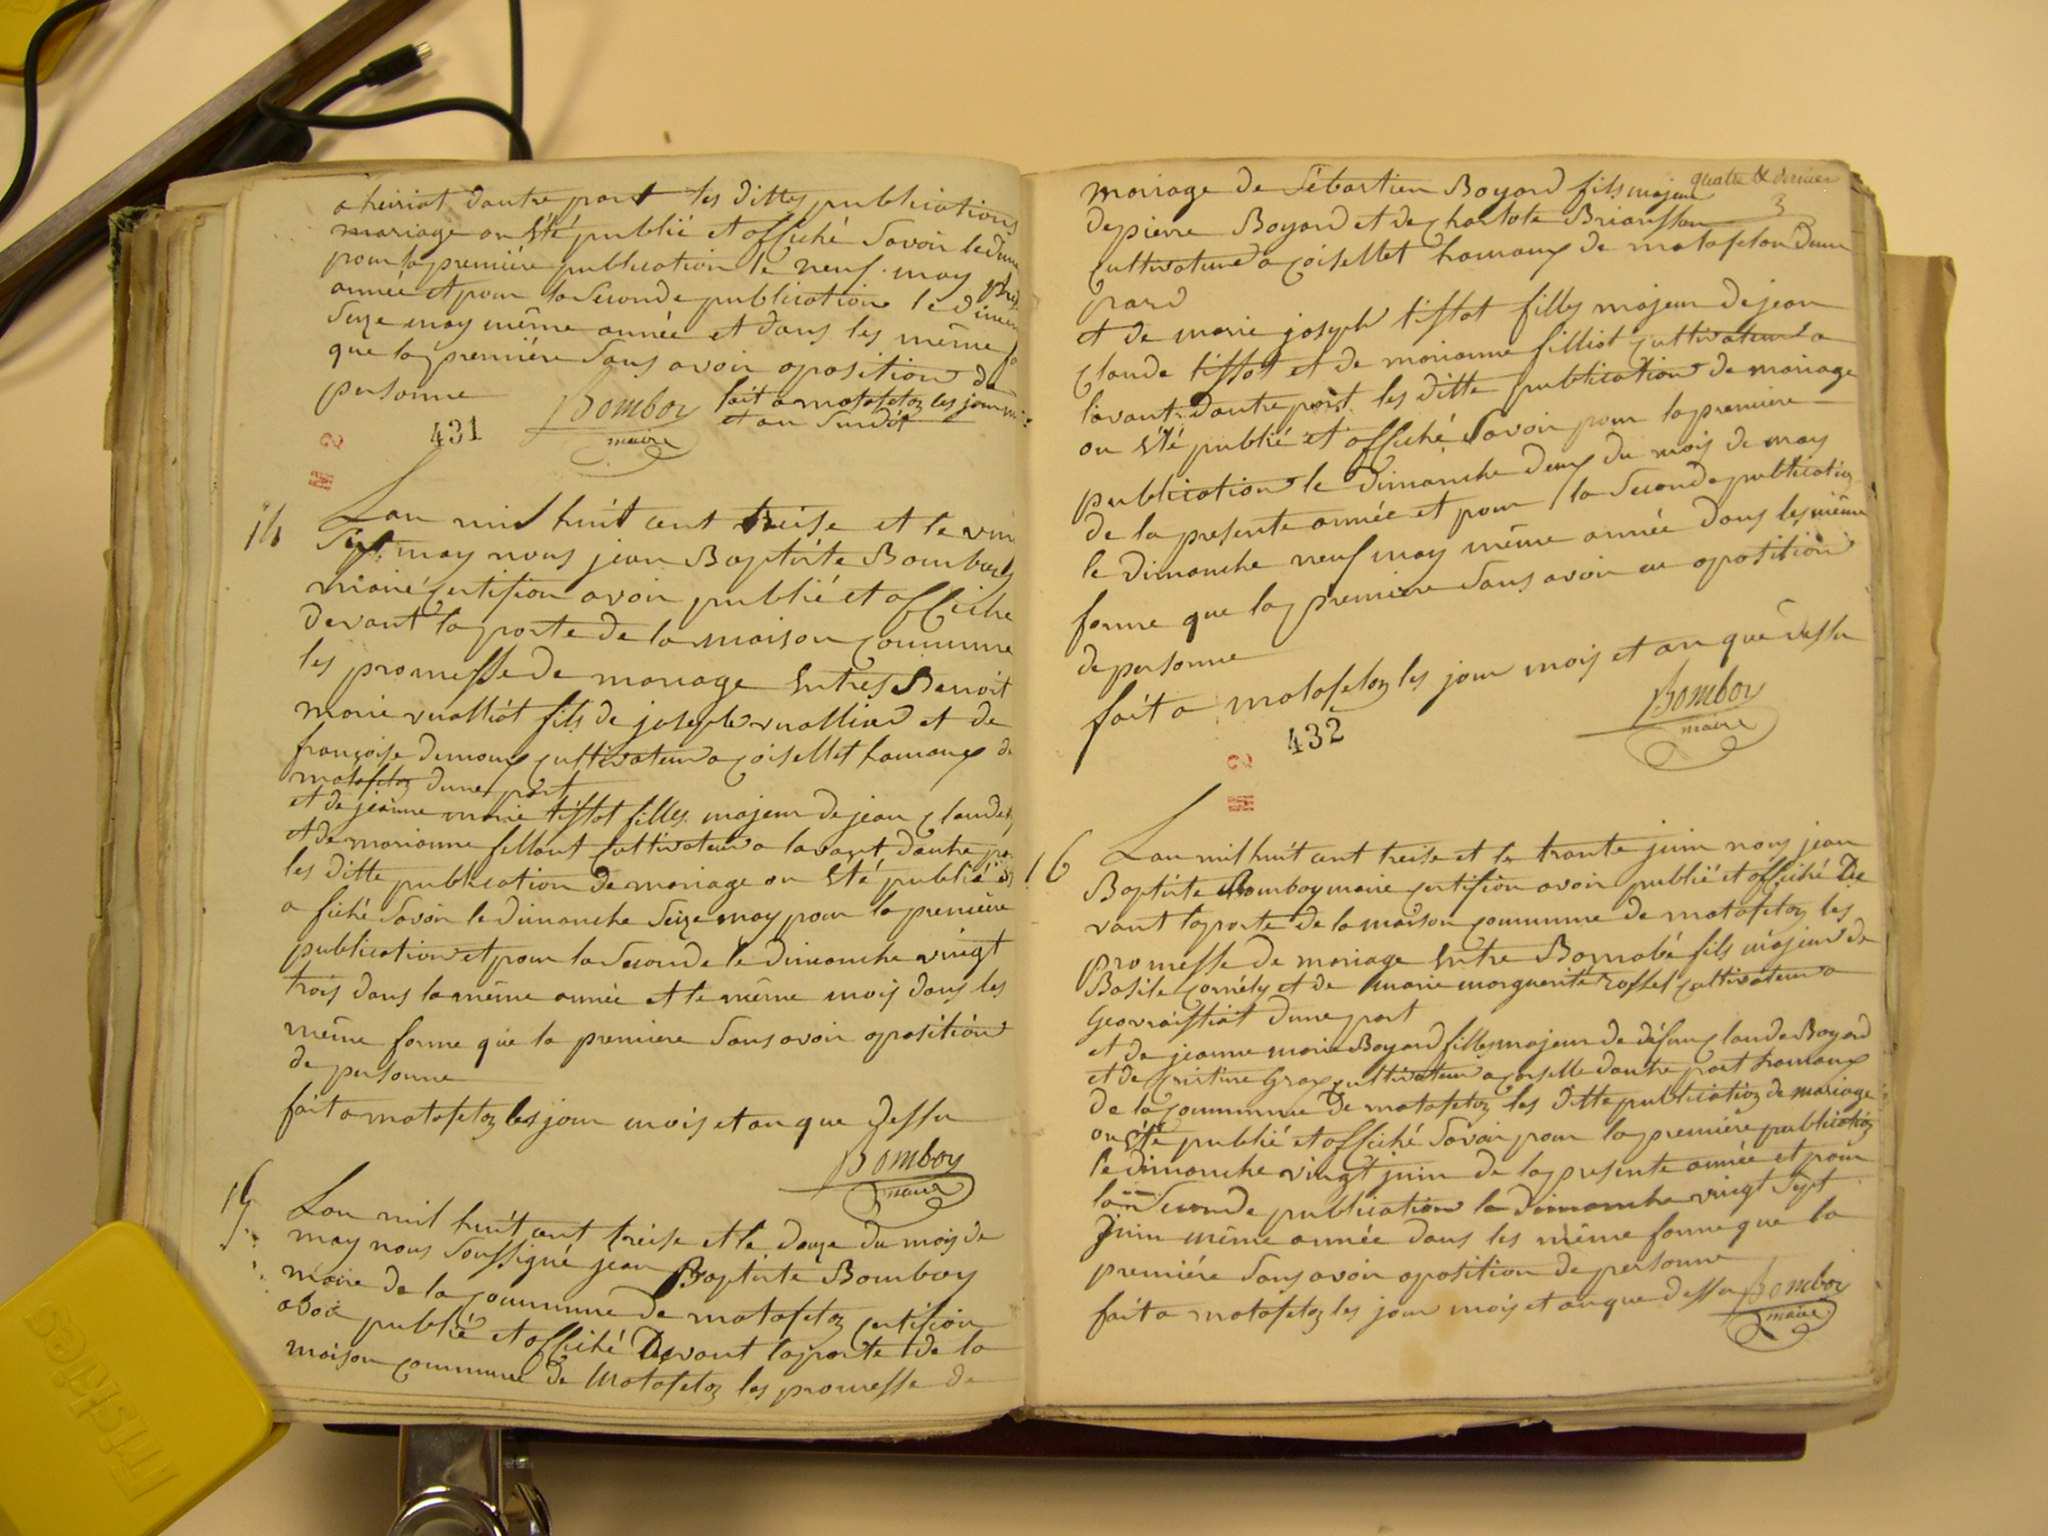 a heiriat dautre part les dittes publications
mariage on été publié et affiché Savoir le dim
pour la premiére publication le neuf may
année et pour la Seconde publication le dimen
Seize may même année et dans les même fo
que la premiére Sans avoir oposition de
personne Bomboy fait a matafelon les jour mois
maire et an Susdit
431
14
Lan mil huit cent treise et le vin
Sept may nous jean Baptiste Bomboy
maire certifion avoir publié et affiche
devant la porte de la maison commune
les promesse de mariage Entres Benoit
marie vualliot fils de joseph vualliod et de
françoise demoux cultivateur a Coisellet hamaux de
matafelon dune part
et de jeanne marie tissot filles majeur de jean Claude
et de marianne fellaut Cultivateur a lavant dautre par
les ditte publication de mariage on Eté publié et
a fiché Savoir le dimanche Seize may pour la premiére
publication et pour la Seconde le dimanche vingt
trois dans la même année et le même mois dans les
même forme que la premiere Sans avoir oposition
de personne
fait a matafelon les jour mois et an que dessu
Bomboy
maire
15
Lan mil huit cent treise et le douze du mois de
may nous Soussigné jean Baptiste Bomboy
maire de la commune de matafelon certifion
avoir publié et affiché Devant la porte de la
maison commune de Matafelon les promesse de
quatre & dernier
3
mariage de Sébastien Boyard fils majeur
de pierre Boyard et de Charlote Brianssan
Cultivateur a Coisellet hamaux de matafelon dune
pard
et de marie joseph tissot filles majeur de jean
Claude tissot et de marianne filliot Cultivateur a
lavant dautre part les ditte publication de mariage
on Eté publié et affiché Savoir pour la premiere
publication le dimanche deux du mois de may
de la presente année et pour la Seconde publication
le dimanche neuf may même année dans les même
forme que la premiere Sans avoir eu oposition
de personne
fait a matafelon les jour mois et an que dessu
Bomboy
maire
432
16
Lan mil huit cent treise et le trante juin nous jean
Baptiste Bomboy maire certifion avoir publié et affiché De
vant la porte de la maison commune de matafelon les
promesse de mariage Entre Barnabé fils majeur de
Basile Cornély et de marie marguerite rosset cultivateur a
Geovraissiat dune part
et de jeanne marie Boyard filles majeur de défun Claude Boyard
et de Cristine Grax cultivateur a Coiselle dautre part hamaux
de la commune De matafelon les ditte publication de mariage
on été publié et affiché Savoir pour la premiére publication
le dimanche vingt juin de la presente année et pour
la Seconde publication le dimanche vingt Sept
Juin même année dans les même forme que la
premiére Sans avoir oposition de personne
fait a matafelon les jour mois et an que dessu Bomboy
maire
Friskies